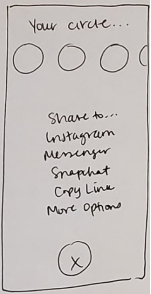 Your circle...
Share to...
Instagram
Messenger
Snapchat
Copy Link
More Options
X